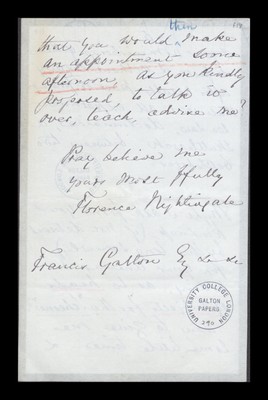 then
that you would make
an appointment some
afternoon, as you kindly
proposed, to talk it
over, teach, advise me?
Pray believe me
yours most ffully
Florence Nightingale
Francis Galton Esq &c &c
UNIVERSITY COLLEGE LONDON
GALTON
PAPERS
290